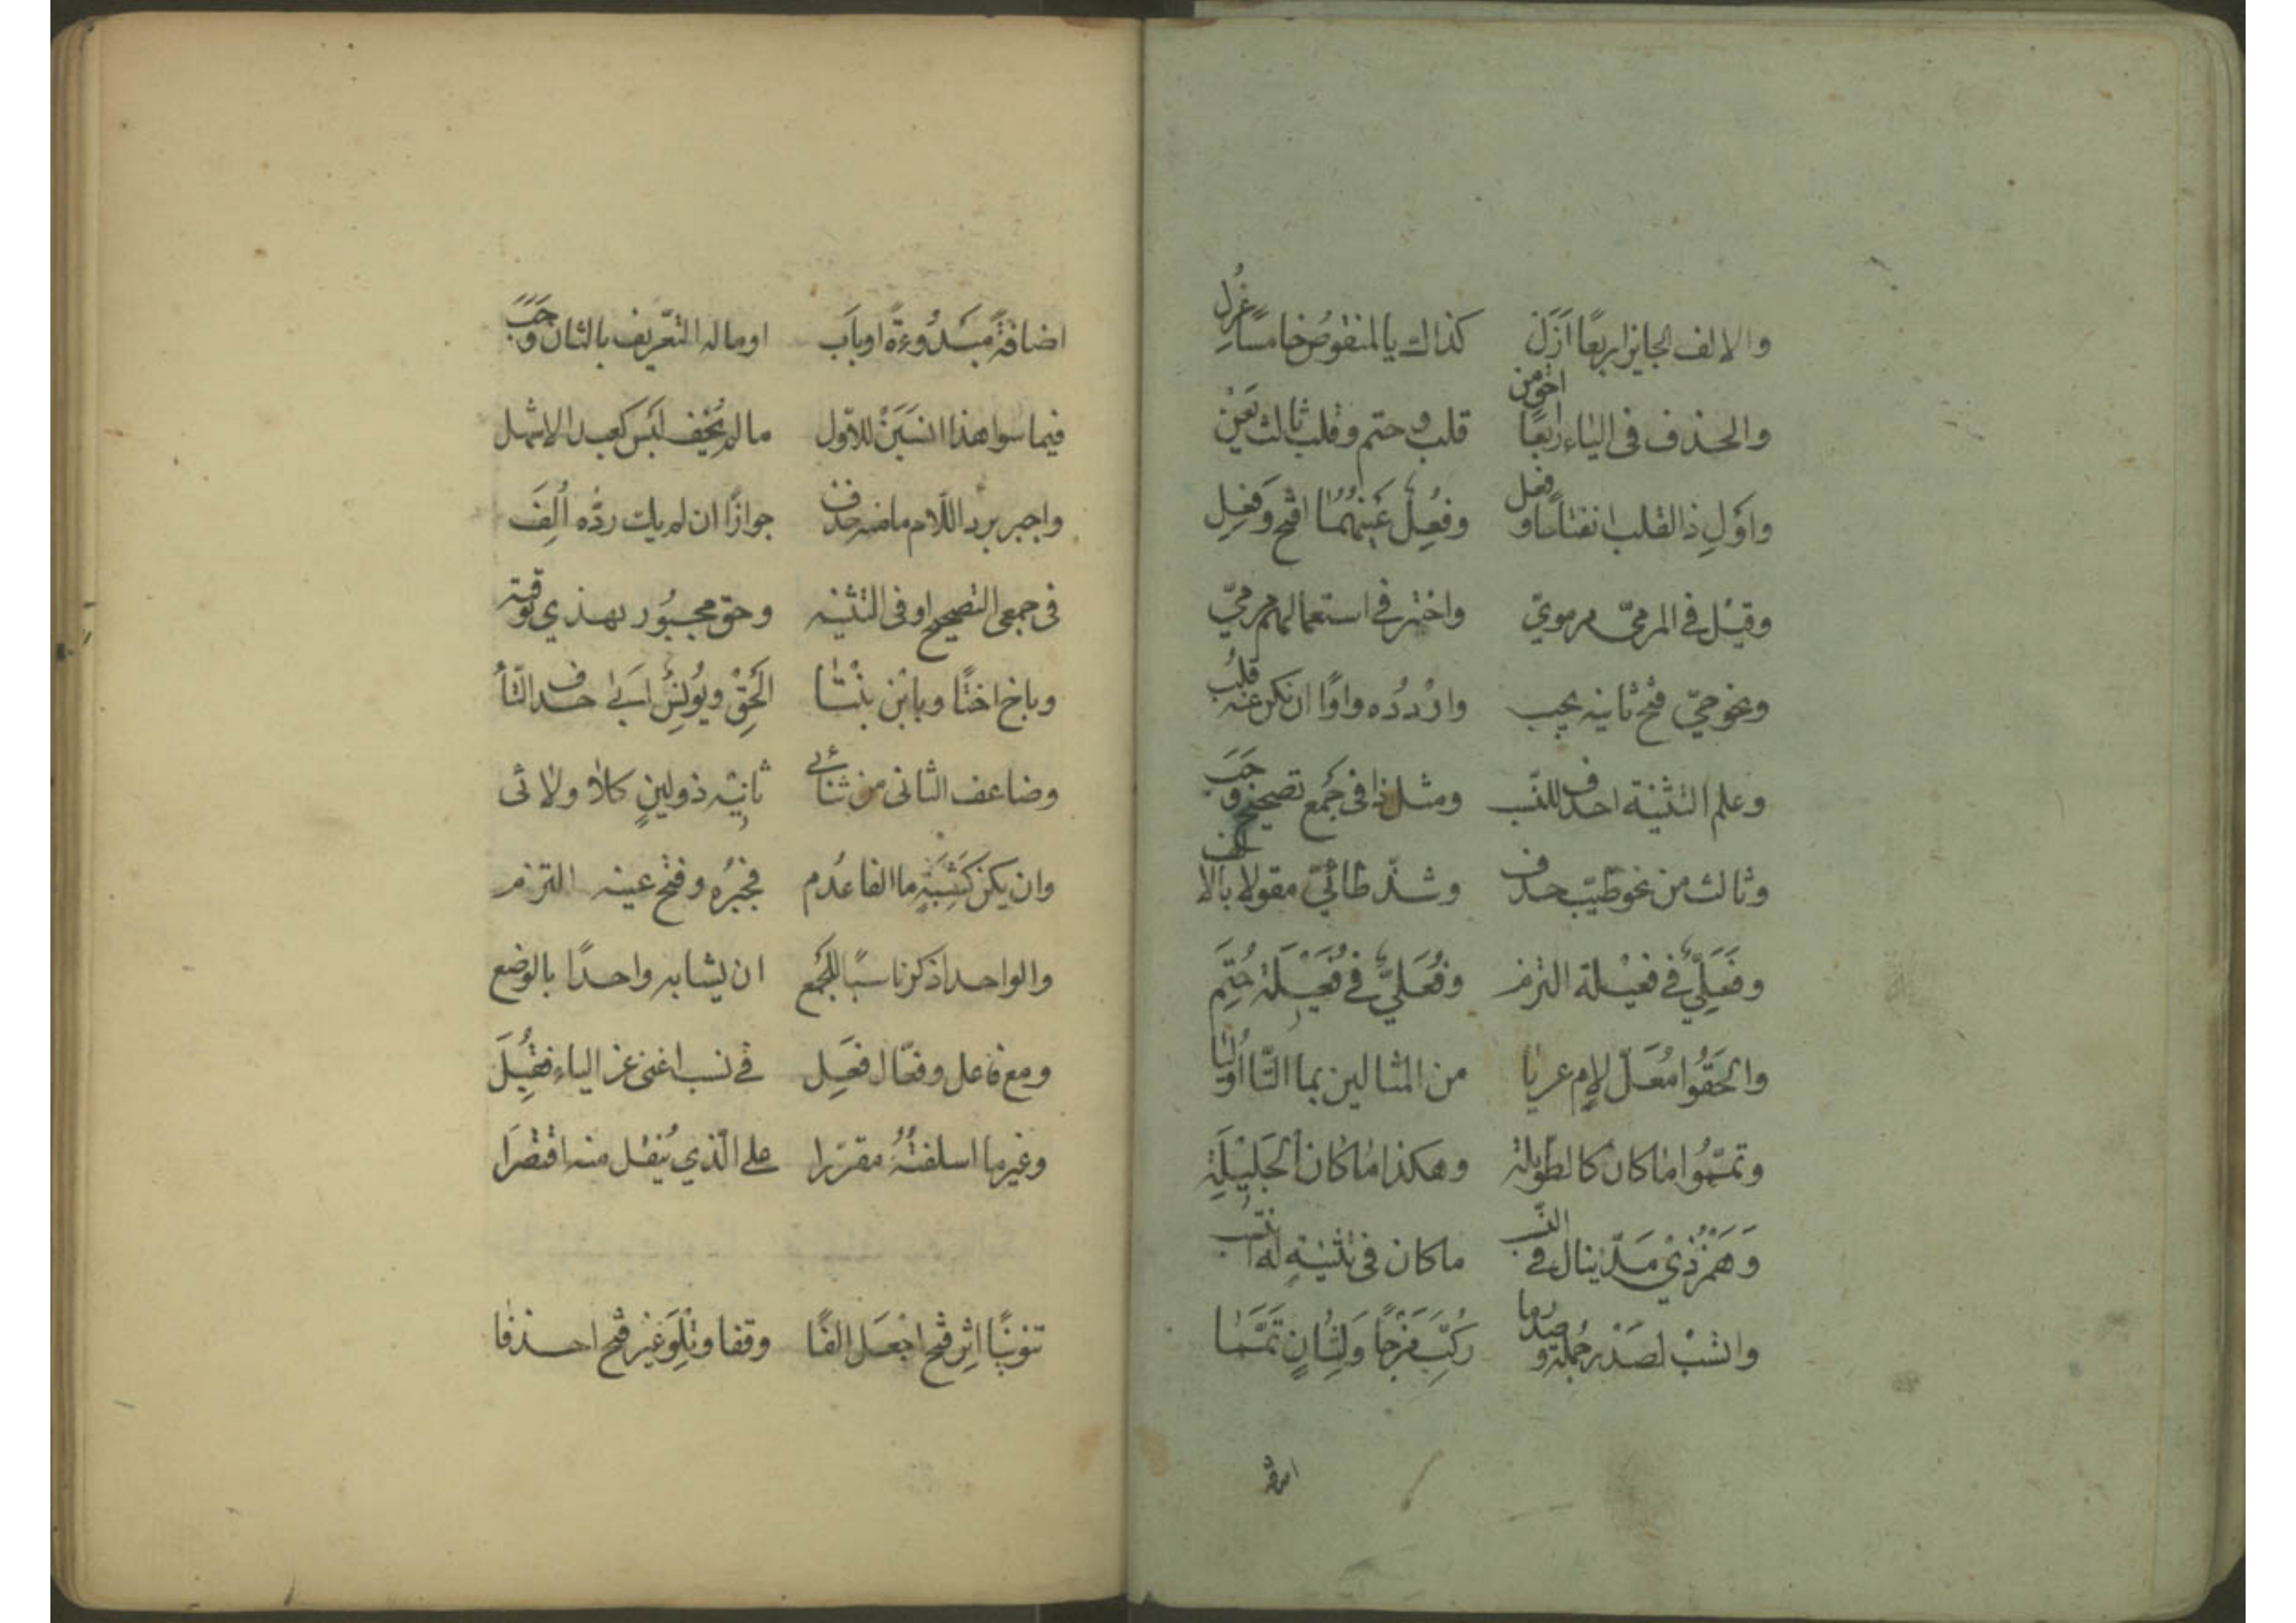 والالف الجايز اربعًا اَزَل كذاك يا المنقوص خامسًا عُزل
والحذف فى الياء رابعًا احق من قلب وحتم وقلب ثالث يَعِنّ
واَوْلِ ذا القلب انفتاحًا وفَعِل وفُعِلٌ عَينهُمَا افتح وَفِعِل
وقيل فى المرمىّ مرموىّ واختير فى استعمالهم مرمىّ
ونحو حىّ فتح ثانيه يجب وارْدُدْه واوًا ان يكن عنه قُلب
وعلم التثنية احذف للنّسب ومثل ذا فى جَمع تصحيح وَجَب
وثالث من نحو طيّب حذف وشذّ طائىّ مقولا بالالف
وفَعَلِىٌّ فى فعيْلة التزم وفُعَلِىٌّ فى فُعَيْلَة حُتِم
والْحَقُوا مُعَلّ لامٍ عريا من المثالين بما التّا اُوليا
وتمّمُوا ماكان كالطويلة وهكذا ماكان كالْجَلِيْلَةِ
وَهَمْزُ ذِيْ مَدٍّ ينال فى النّسب ماكان فى تثنيةٍ له انتسب
وانسُبْ لصَدْر جُملة وصدر ما رُكِّبَ مَزْجًا وَلِثَانٍ تَمَّمَا
اضافة
اضافةً مبْدُوءةً او باَب او ماله التّعريف بالثان وَجَب
فيما سوا هذا انسُبَنْ للاّول مالم يُخَف لَبس كعبد الاشهل
واجبر بردّ اللّام ما منه حذف جوازًا ان لم يك ردُّه اُلِفَ
فى جمعى التصحيح او فى التثنيه وحق مجبُور بهذي توفيه
وباخ اختًا وبابْن بنْتًا اَلْحِقْ ويُونُسُ اَبى حذف التّا
وضاعف الثانى من ثنائى ثانيه ذو لينٍ كلا ولائى
وان يكن كَشِيَةٍ ما الفا عدُم فجبْرُه وفتح عينه التزم
والواحد اذكر ناسبًا للجَمع ان لم يشابه واحدًا بالوضع
ومع فاعل وفعّال فَعِل فى نسب اغنى عن الياء فقُبِلَ
وغير ما اسلفتُهُ مقرّرا على الّذي يُنقل منه اقتُصِرَا
تنوينًا اثر فتح اجْعَل الفًا وقفا وتِلْوَ غير فتح احذفا